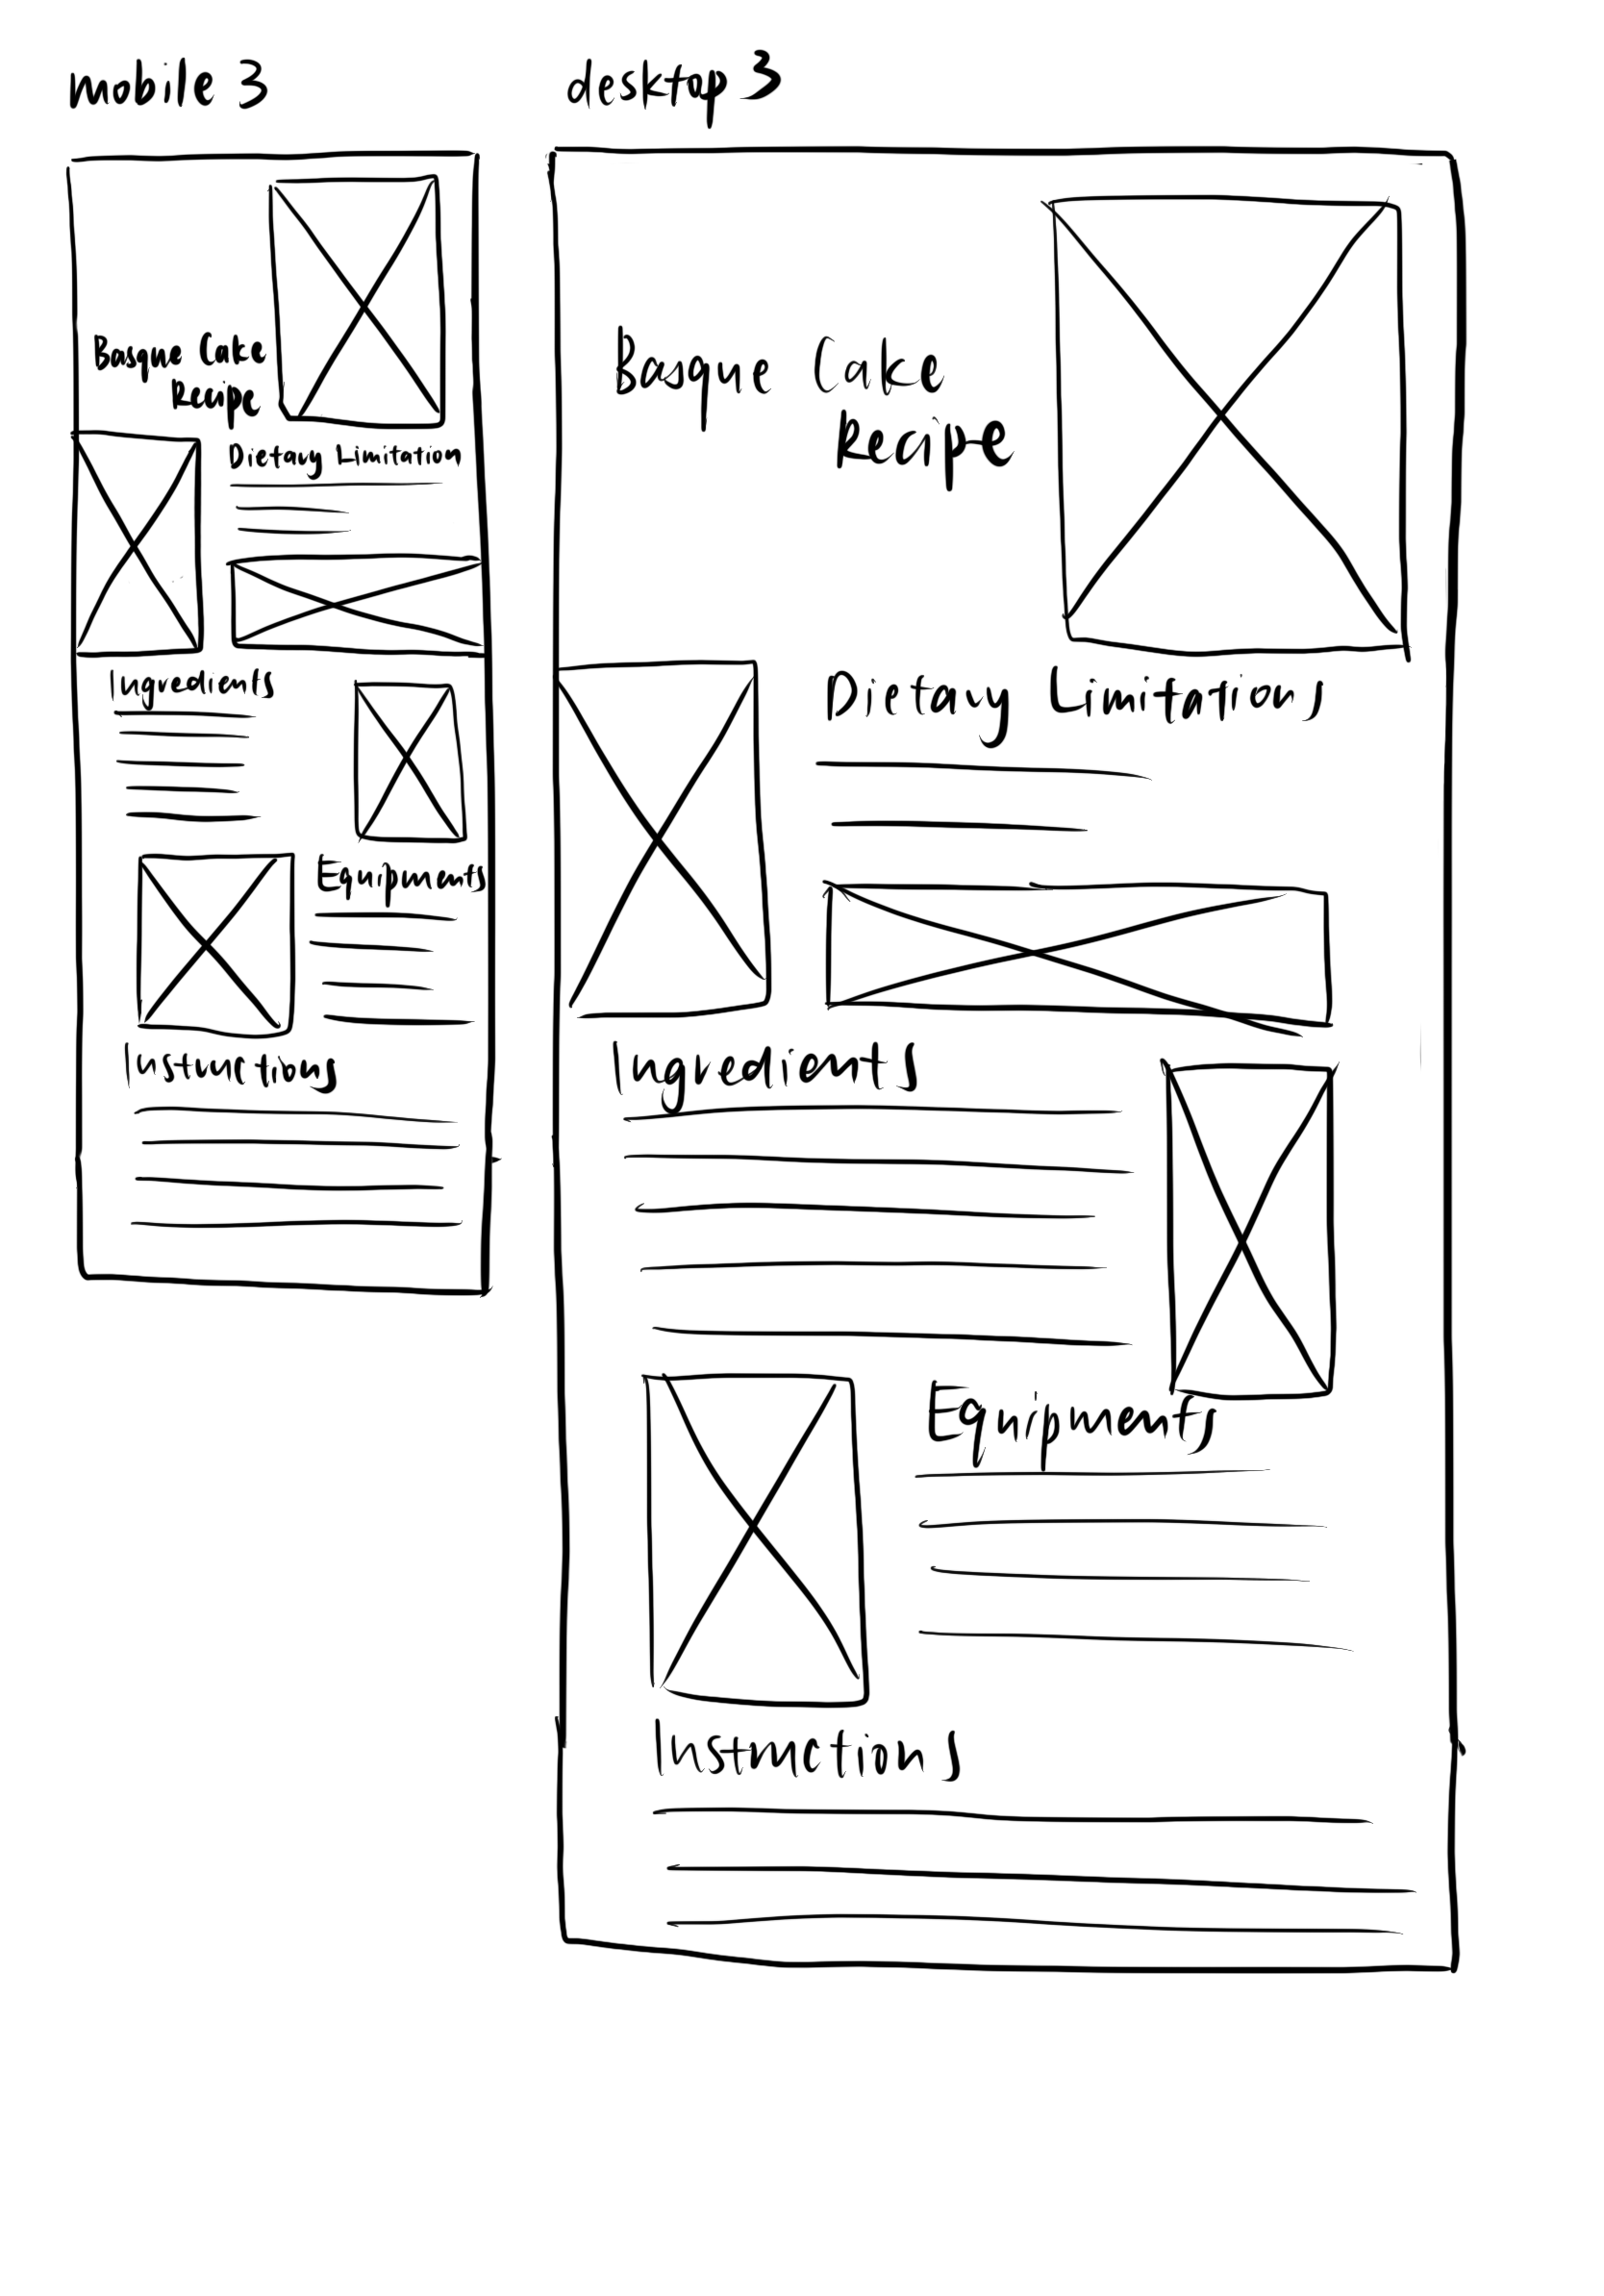 mobile 3
Basque Cake
Recipe
Dietary Limitation
Ingredients
Equipments
Instructions
desktop 3
Basque Cake
Recipe
Dietary Limitations
Ingredients
Equipments
Instructions